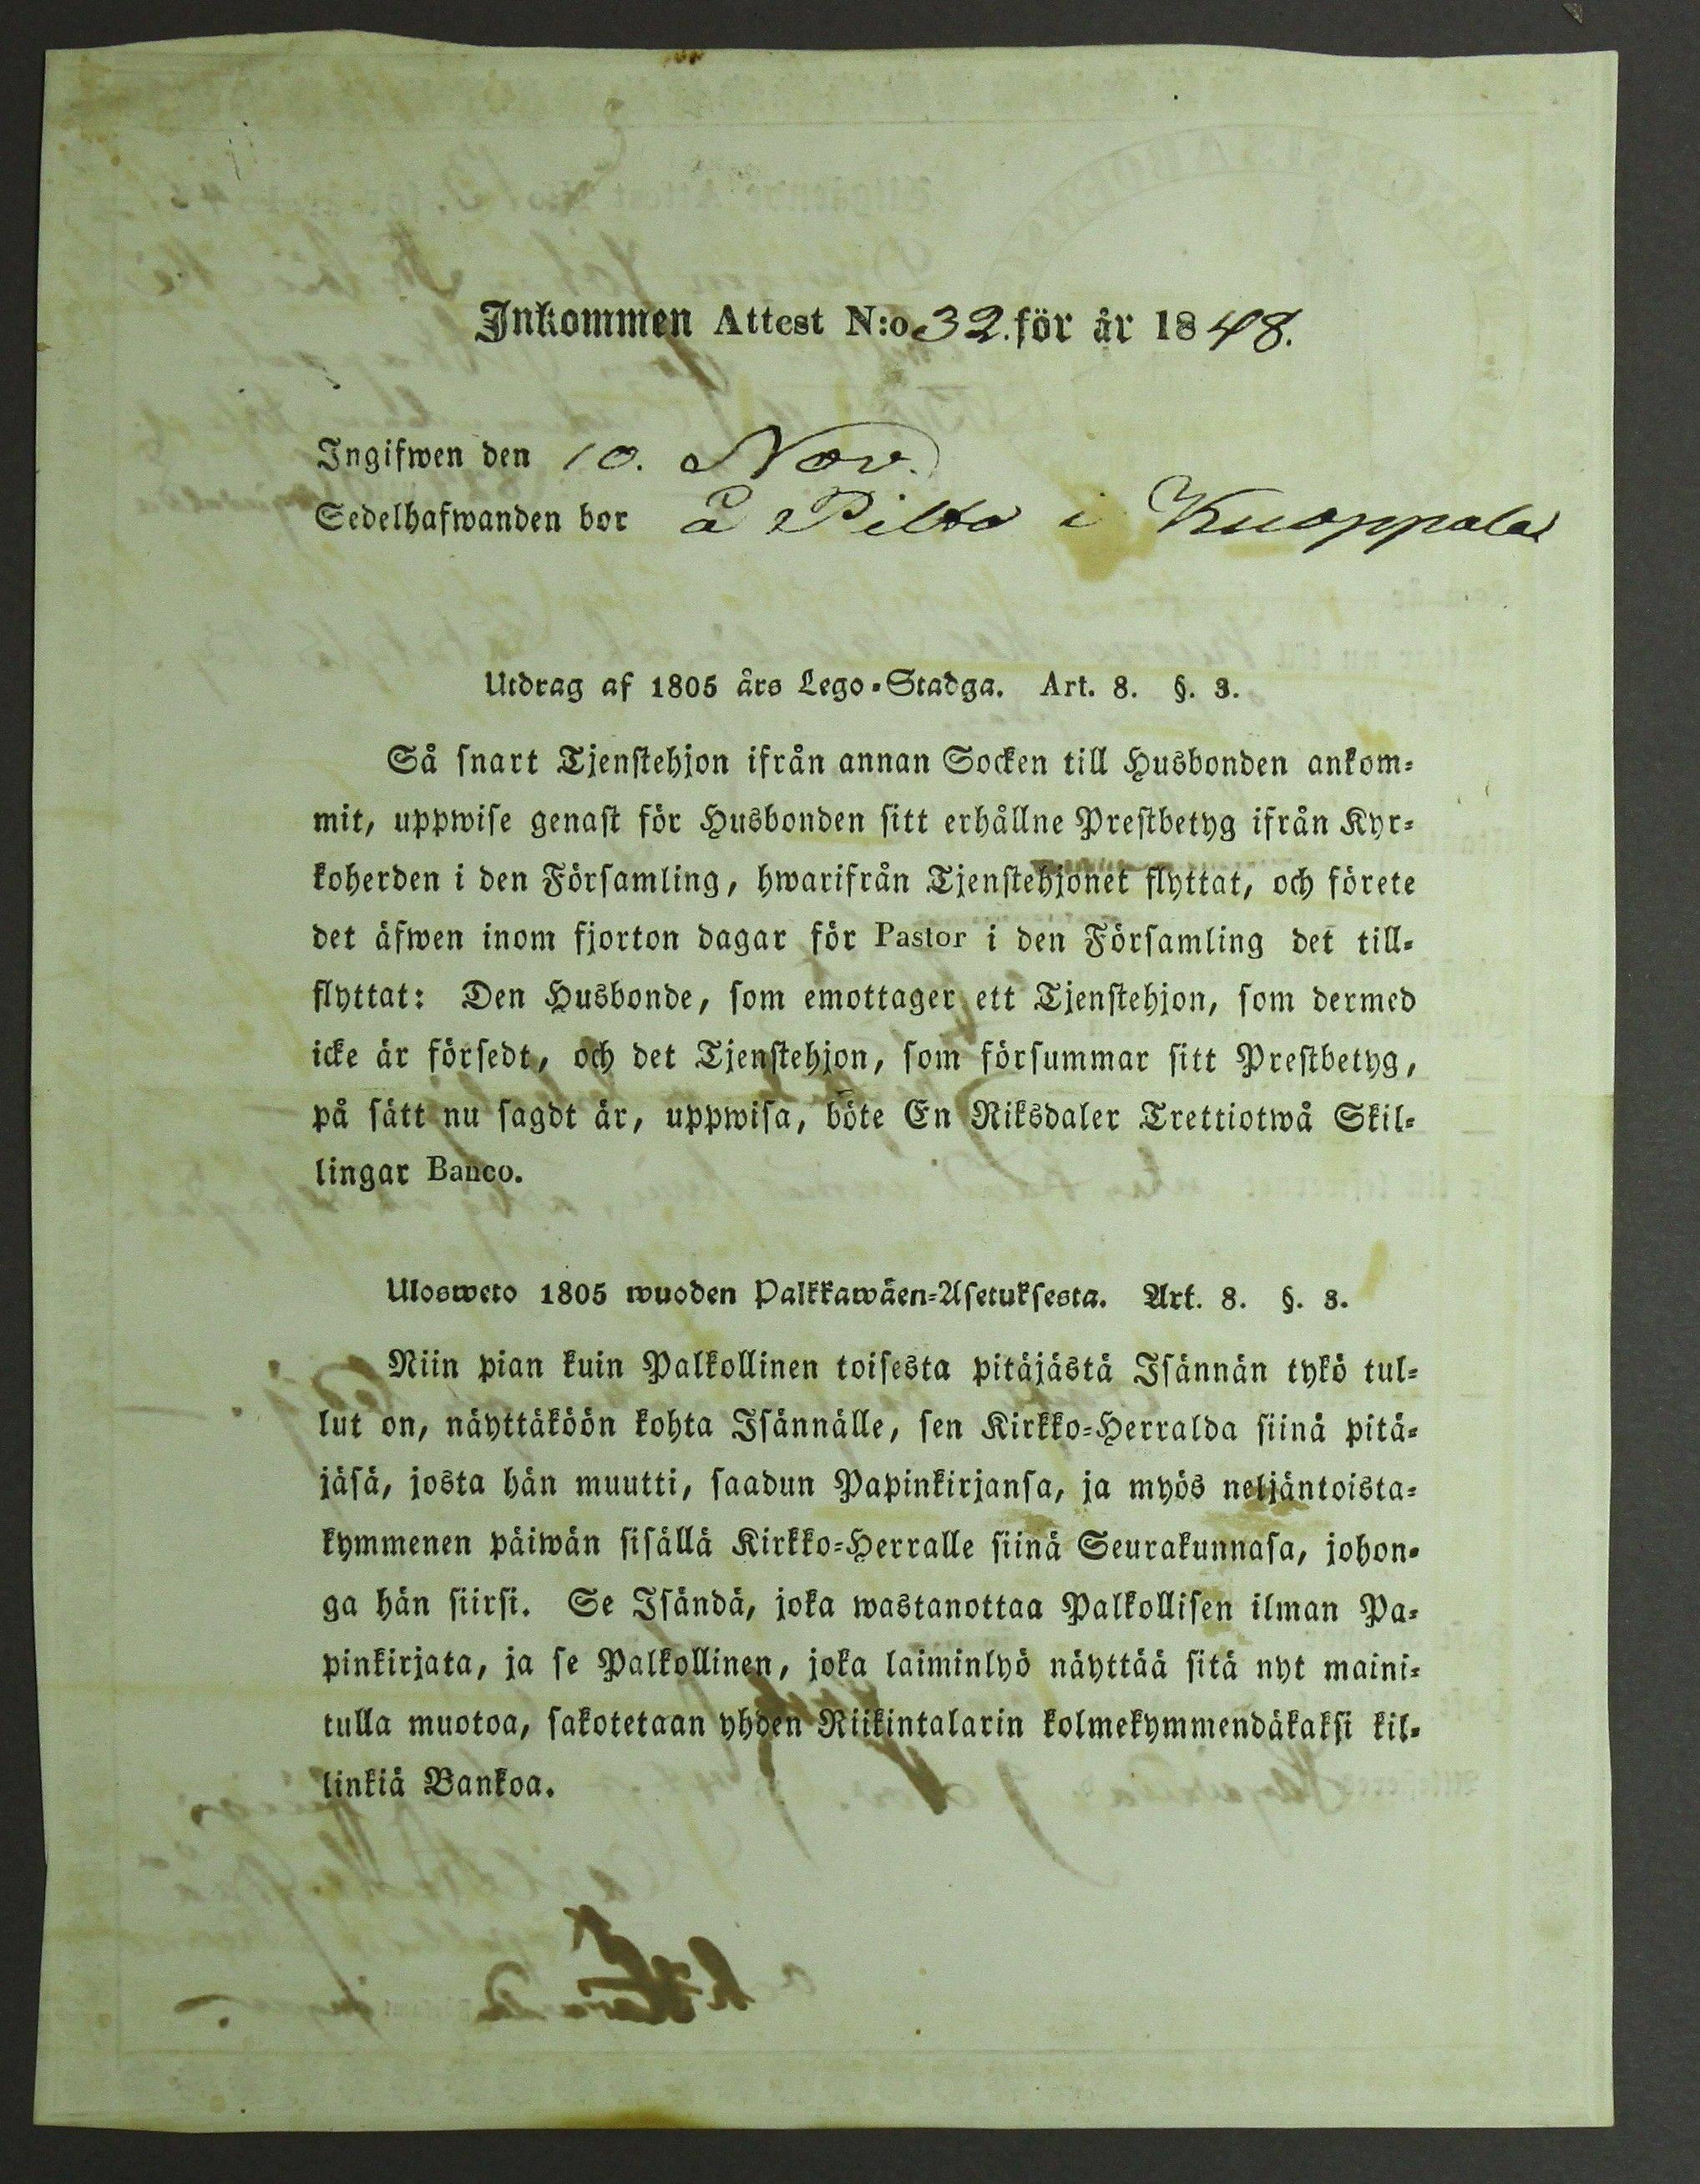 Inkommen Attest N:o 32. för år 1848.
Ingifwen den 10. Nov.
Sedelhafwanden bor å Pilto i Kuoppala
Utdrag af 1805 års Lego-Stadga. Art. 8. §. 3.
Så snart Tjenstehjon ifrån annan Socken till Husbonden ankom-
mit, uppwise genast för Husbonden sitt erhållne Prestbetyg ifrån Kyr-
koherden i den Församling, hwarifrån Tjenstehjonet flyttat, och förete
det äfwen inom fjorton dagar för Pastor i den Församling det till-
flyttat: Den Husbonde, som emottager ett Tjenstehjon, som dermed
icke är försedt, och det Tjenstehjon, som försummar sitt Prestbetyg,
på sätt nu sagdt är, uppwisa, böte En Riksdaler Trettiotwå Skil-
lingar Banco.
Ulosweto 1805 wuoden Palkkawäen-Asetuksesta. Art. 8. §. 3.
Niin pian kuin Palkollinen toisesta pitäjästä Isännän tykö tul-
lut on, näyttäköön kohta Isännälle, sen Kirkko-Herralda siinä pitä-
jäsä, josta hän muutti, saadun Papinkirjansa, ja myös neljäntoista-
kymmenen päiwän sisällä Kirkko-Herralle siinä Seurakunnasa, johon-
ga hän siirsi. Se Isändä, joka wastanottaa Palkollisen ilman Pa-
pinkirjata, ja se Palkollinen, joka laiminlyö näyttää sitä nyt maini-
tulla muotoa, sakotetaan yhden Riikintalarin kolmekymmendäkaksi kil-
linkiä Bankoa.